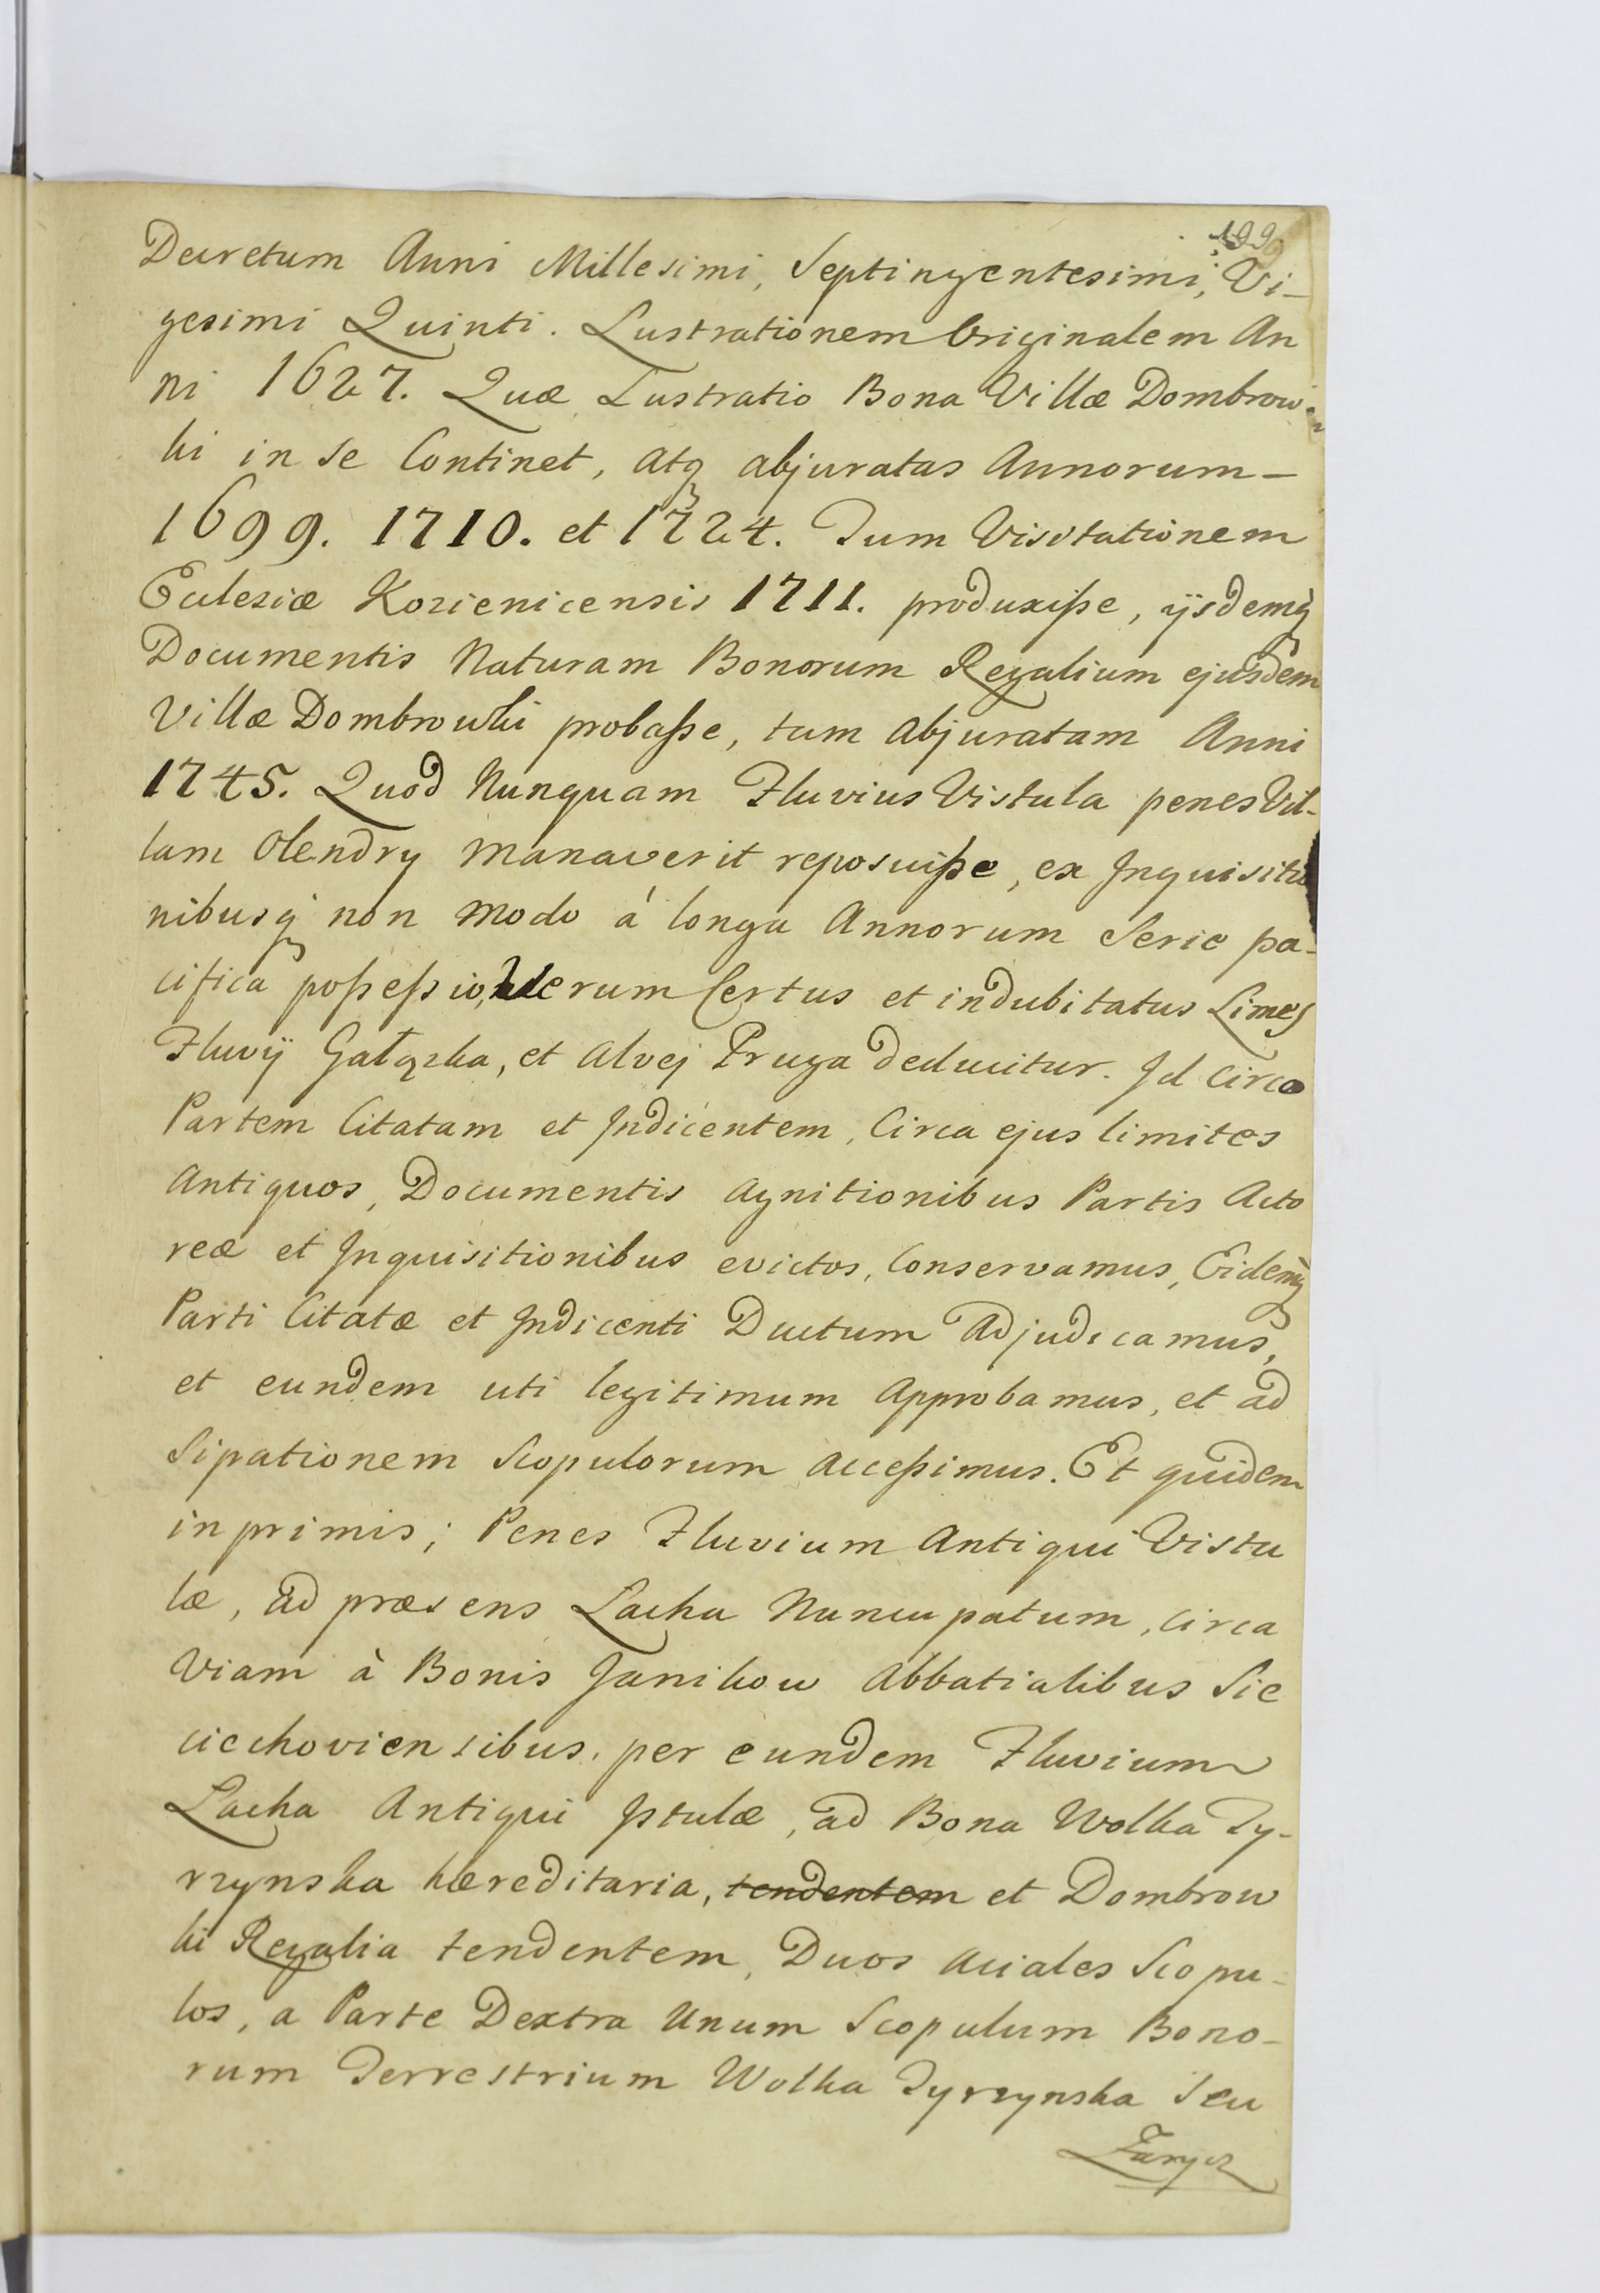 199
Decretum Anni Millesimi, Septingentesimi, Vi-
gesimi Quinti. Lustrationem Originalem An
ni 1627. Quæ Lustratio Bona Villæ Dombrow-
ki in se Continet, atq abjuratas Annorum-
1699. 1710. et 1724. Tum Visitationem
Eclesiæ Kozienicensis 1711. produxiſse, ijsdemq
Documentis Naturam Bonorum Regalium ejusdem
Villæ Dombrowki probaſse, tum abjuratam Anni
1745. Quod Nunquam Fluvius Vistula penes Vil-
lam Olendry manaverit reposuiſse, ex Inquisitio
nibusq non modo á longa Annorum Serie pa-
cifica poſseſsio, Verum Certus et indubitatus Limes
Fluvij Gałązka, et Alvej Pruga deducitur. Id circo
Partem Citatam et Indicentem, Circa ejus limites
Antiquos, Documentis Agnitionibus Partis Acto
reæ et Inquisitionibus evictos, Conservamus, Eidemq
Parti Citatæ et Indicenti Ductum Adjudicamus,
et eundem uti legitimum Approbamus, et ad
Sipationem Scopulorum acceſsimus. Et quidem
inprimis; Penes Fluvium Antiqui Vistu
læ, ad præsens Lacha Nuncupatum, circa
Viam à Bonis Janikow Abbatialibus Sie
ciechoviensibus, per eundem Fluvium
Lacha Antiqui Istulæ, ad Bona Wolka Ty-
rzynska hæreditaria, tendentem et Dombrow
ki Regalia tendentem, Duos Aciales Scopu-
los, a Parte Dextra Unum Scopulum Bono-
rum Terrestrium Wolka Tyrzynska Seu